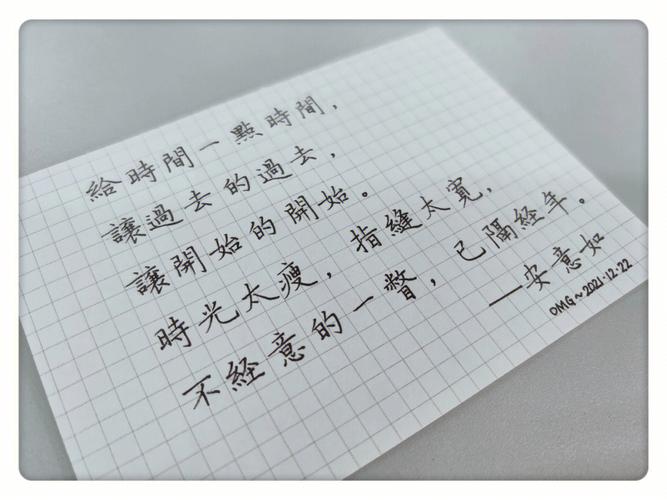 給時間一點時間，
讓過去的過去，
讓開始的開始。
時光太瘦，指縫太寬，
不經意的一瞥，已隔経年。
——安意如
OMG~2021.12.22